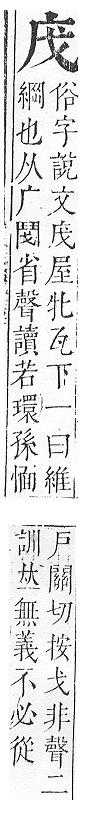 俗字說文屋牝瓦下一曰維
綱也从广省聲讀若環孫愐
戶關切按戈非聲二
訓𠀤無義不必從